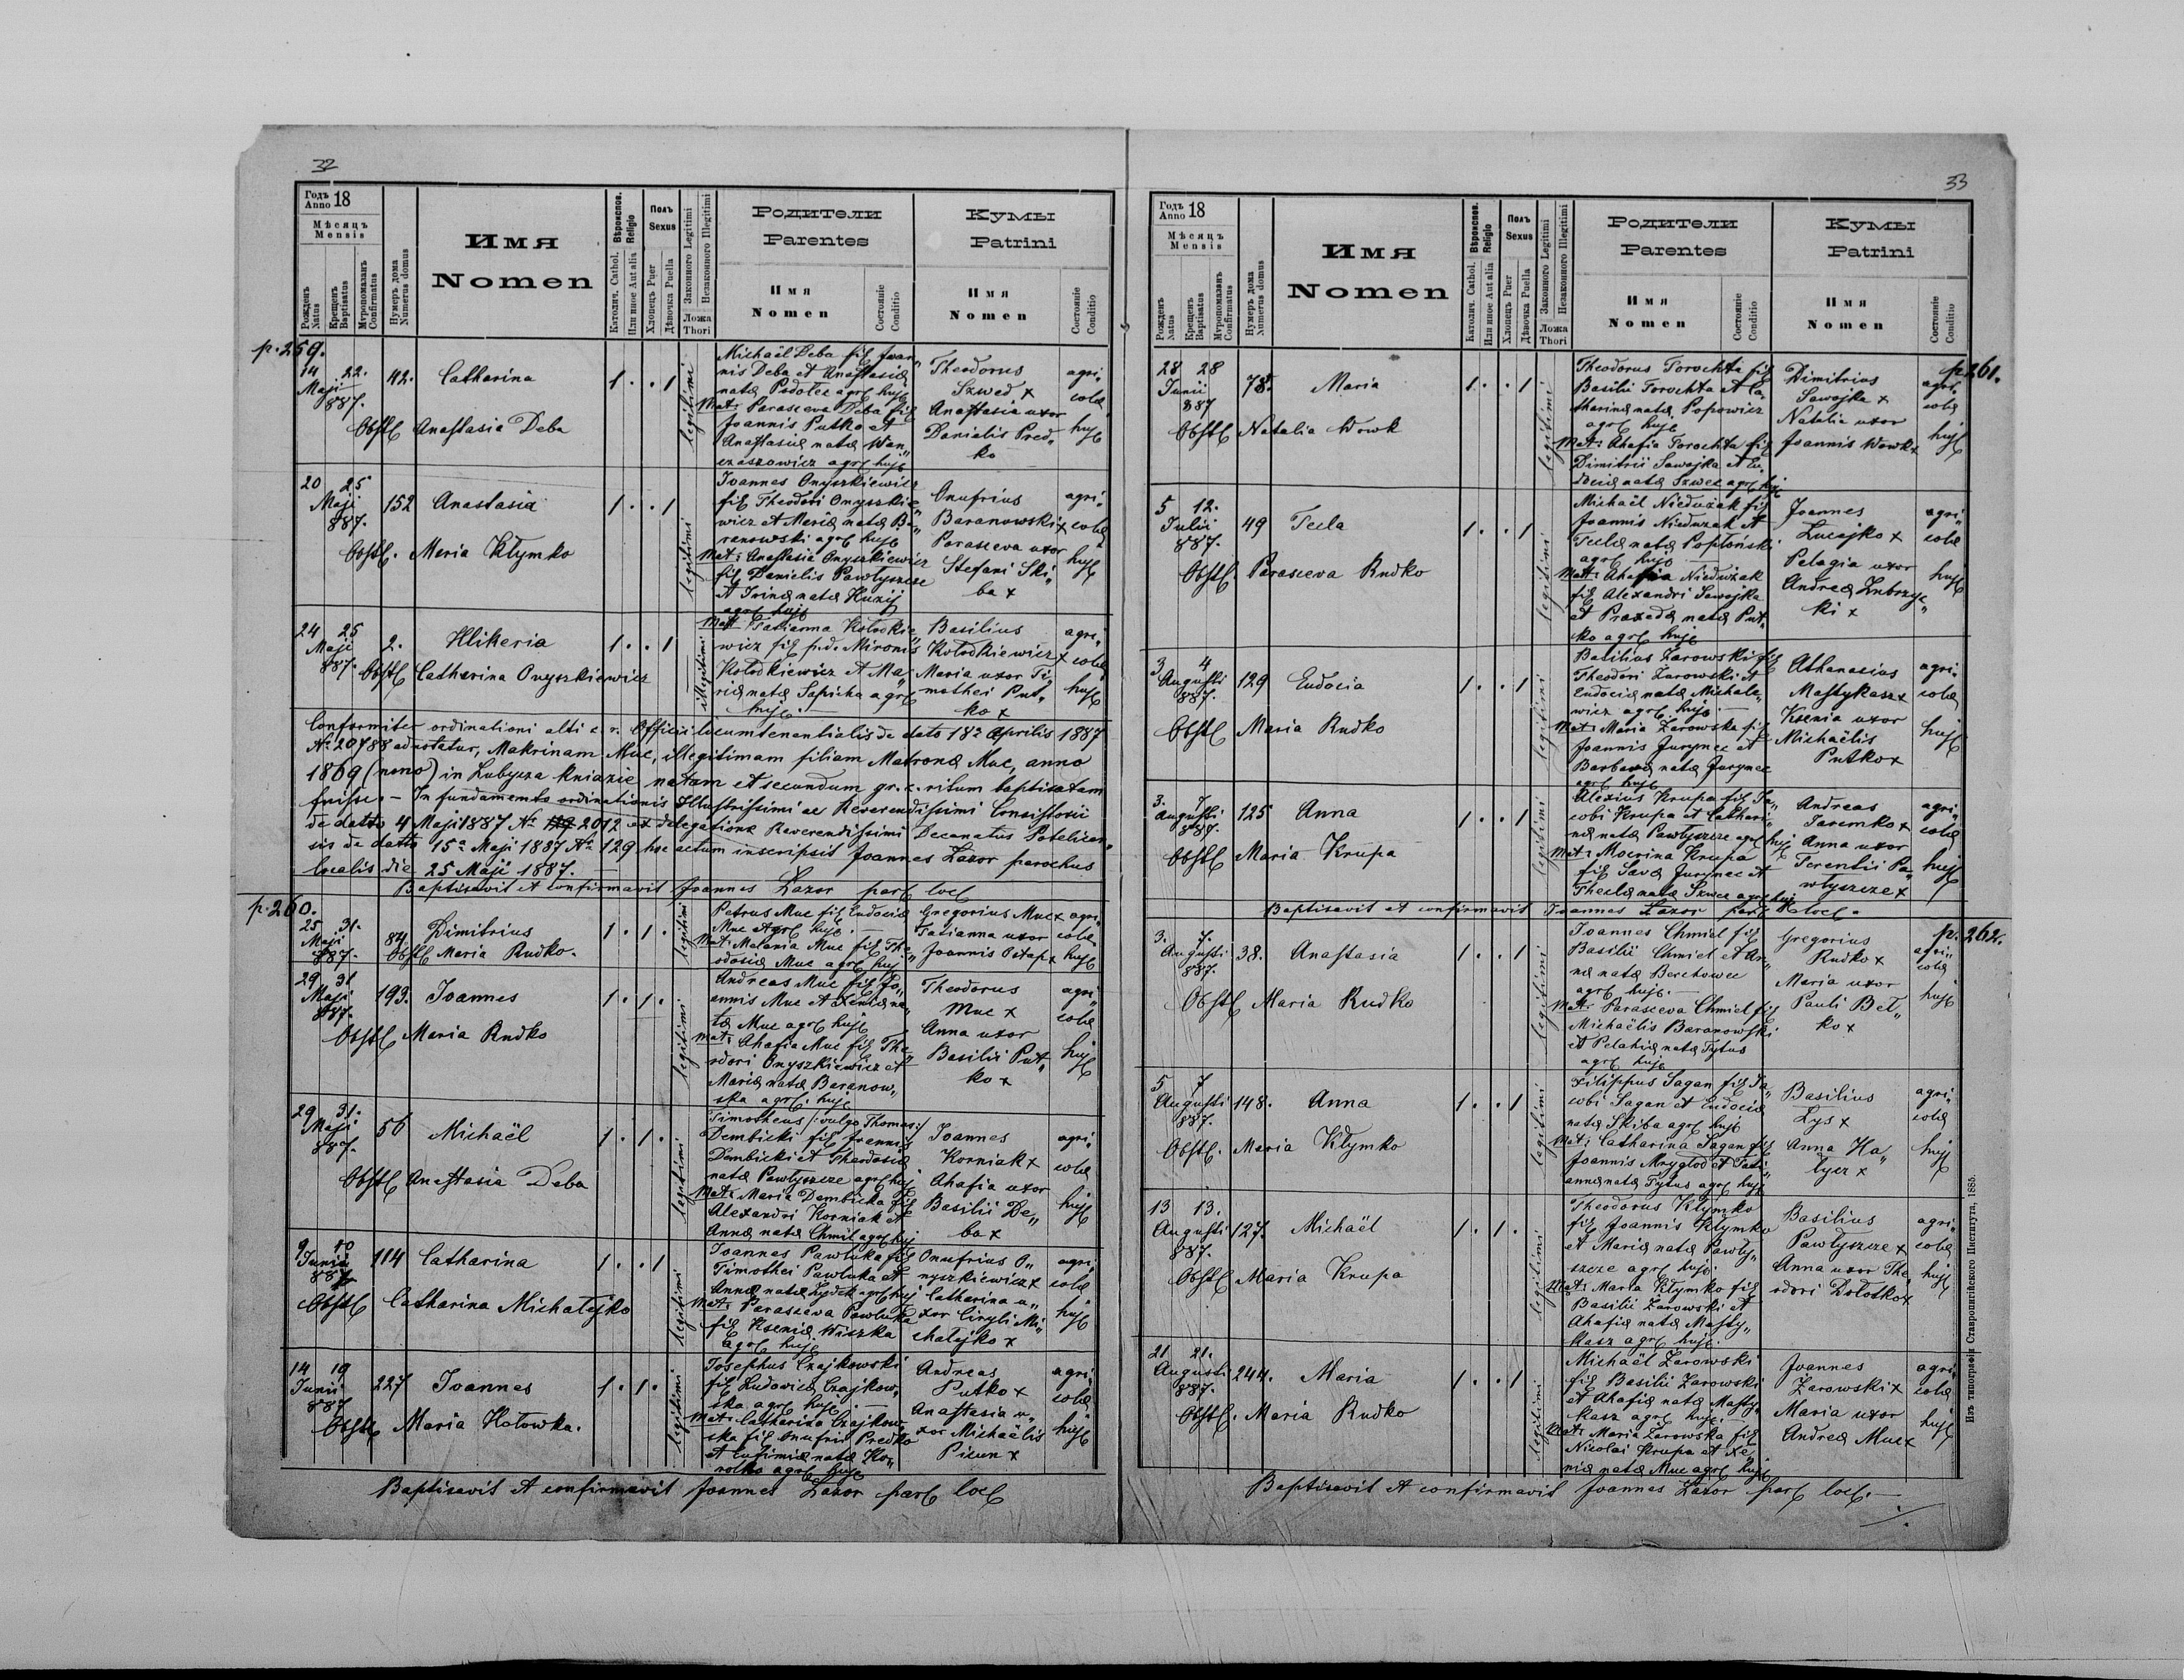 32
Годъ Anno 18
Мѣсяцъ Mensis
Рожденъ Natus
Крещенъ Baptisatus
Мѵропомазанъ Confirmatus
Нумеръ дома Numerus domus
Имя Nomen
Вѣроиспов. Religio
Католич. Cathol.
Или иное Aut alia
Полъ Sexus
Хлопецъ Puer
Дѣвочка Puella
Законного Legitimi
Незаконного Illegitimi
Ложа Thori
Родители Parentes
Имя Nomen
Состоянie Conditio
Кумы Patrini
Имя Nomen
Состоянie Conditio
p. 259.
14 22. Maji 887. 42. Catharina 1 . . 1 legitimi
Obst Anastasia Deba
Michaël Deba fil Joan„
nis Deba et Anastasia
nata Podolec agr huj
Mat: Parasceva Deba fil
Joannis Putko et
Anastasia nata Wan„
czaszowicz agr huj
Theodorus
Szwed x
Anastasia uxor
Danielis Pred„
ko
agri„
cola
huj
20 25 Maji 887. 152 Anastasia 1 . . 1 legitimi
Obst. Maria Kłymko
Joannes Onyszkiewicz
fil Theodori Onyszkie„
wicz et Maria nata Ba„
ranowski agr huj
Mat: Anastasia Onyszkiewicz
fil Danielis Pawłyszcze
et Irina nata Huzij
agr huj
Onufrius
Baranowski x
Parasceva uxor
Stefani Ski„
ba x
agri„
cola
huj
24 25 Maji 887. 2. Hlikeria 1 . . 1 illegitimi
Obst Catharina Onyszkiewicz
Mat: Tatianna Kołodkie„
wicz fil p.d. Mironis
Kołodkiewicz et Ma„
ria nata Sapicha agr
huj.
Basilius
Kołodkiewicz x
Maria uxor Ti„
mothei Put„
ko x
agri„
cola
huj
Conformiter ordinationi alti c. r. Officii locumtenentialis de dato 18a Aprilis 1887
No 20788 adnotatur, Makrinam Muc, illegitimam filiam Matrona Muc, anno
1869 (nono) in Lubycza kniazie natam et secundum gr. c. ritum baptisatam
fuisse. – In fundamento ordinationis Illustrissimi ac Reverendissimi Consistorii
de datto 4 Maji 1887 No 2012 ex delegatione Reverendissimi Decanatus Potelicen„
sis de datto 15a Maji 1887 No 129 hoc actum inscripsit Joannes Lazor parochus
localis die 25 Maji 1887.
Baptisavit et confirmavit Joannes Lazor par loc
p. 260.
25 31. Maji 887. 84 Dimitrius 1 . 1 . legitimi
Obst Maria Rudko.
Petrus Muc fil Eudocia
Muc agr huj.
Mat: Malania Muc fil The„
odosia Muc agr huj
Gregorius Muc x
Tatianna uxor
Joannis Ostap x
agri„
cola
huj
29 31 Maji 887. 193. Joannes 1 . 1 . legitimi
Obst Maria Rudko
Andreas Muc fil Jo„
annis Muc et Xenia na„
ta Muc agr huj
Mat: Ahafia Muc fil The„
odori Onyszkiewicz et
Maria nata Baranow„
ska agr. huj
Theodorus
Muc x
Anna uxor
Basilii Put„
ko x
agri„
cola
huj
29 31. Maji 887. 56 Michaël 1 . 1 . legitimi
Obst Anastasia Deba
Timotheus /:vulgo Thomas:/
Dembicki fil Joannis
Dembicki et Theodosia
nata Pawłyszcze agr huj
Mat: Maria Dembicka fil
Alexandri Korniak et
Anna nata Chmil agr huj
Joannes
Korniak x
Ahafia uxor
Basilii De„
ba x
agri„
cola
huj
9 10 Junii 887 114 Catharina 1 . . 1 legitimi
Obst Catharina Michałejko
Joannes Pawluka fil
Timothei Pawluka et
Anna nata Hydek agr huj
Mat: Parasceva Pawluka
fil Ksenia Wiszka
agr huj
Onufrius O„
nyszkiewicz x
Catharina u„
xor Cirylli Mi„
chałejko x
agri„
cola
huj
14 19 Junii 887 227 Joannes 1 . 1 . legitimi
Obst Maria Hołowka.
Josephus Czajkowski
fil Ludovica Czajkow„
ska agr huj.
Mat: Catharina Czajkow„
ska fil Onufrii Predko
et Eufimia nata Ko„
rolko agr huj
Andreas
Putko x
Anastasia u„
xor Michaëlis
Picun x
agri„
cola
huj
Baptisavit et confirmavit Joannes Lazor par loc
33
Годъ Anno 18
Мѣсяцъ Mensis
Рожденъ Natus
Крещенъ Baptisatus
Мѵропомазанъ Confirmatus
Нумеръ дома Numerus domus
Имя Nomen
Вѣроиспов. Religio
Католич. Cathol.
Или иное Aut alia
Полъ Sexus
Хлопецъ Puer
Дѣвочка Puella
Законного Legitimi
Незаконного Illegitimi
Ложа Thori
Родители Parentes
Имя Nomen
Состоянie Conditio
Кумы Patrini
Имя Nomen
Состоянie Conditio
p. 261.
28 28 Junii 887 78. Maria 1 . . 1 legitimi
Obst Natalia Wowk
Theodorus Torochta fil
Basilii Torochta et Ca„
tharina nata Popowicz
agr huj
Mat: Ahafia Torochta fil
Dimitrii Sawojka et Eu„
docia nata Szwec agr huj
Dimitrius
Sawojka x
Natalia uxor
Joannis Wowk x
agri„
cola
huj
5 12. Julii 887. 49 Tecla 1 . . 1 legitimi
Obst. Parasceva Rudko
Michaël Nieduzak fil
Joannis Nieduzak et
Tecla nata Popłoński
agr huj
Mat: Ahafia Nieduzak
fil Alexandri Sawojka
et Praxeda nata Put„
ko agr huj
Joannes
Lucajko x
Pelagia uxor
Andrea Zubrzyc„
ki x
agri„
cola
huj
3 4 Augusti 887. 129 Eudocia 1 . . 1 legitimi
Obst Maria Rudko
Basilius Zarowski fil
Theodori Zarowski et
Eudocia nata Michale„
wicz agr. huj.
Mat: Maria Zarowska fil
Joannis Jurynec et
Barbara nata Jurynec
agr huj
Athanasius
Mastykasz x
Ksenia uxor
Michaëlis
Putko x
agri„
cola
huj
3. 7 Augusti 887. 125 Anna 1 . . 1 legitimi
Obst Maria Krupa
Alexius Krupa fil Ja„
cobi Krupa et Cathari„
na nata Pawłyszcze agr huj
Mat: Mocrina Krupa
fil Sava Jurynec et
Thecla nata Szwec agr huj
Andreas
Jaremko x
Anna uxor
Terentii Pa„
włyszcze x
agri„
cola
huj
Baptisavit et confirmavit Joannes Lazor par loc.
p. 262.
3. 7. Augusti 887. 38. Anastasia 1 . . 1 legitimi
Obst Maria Rudko
Joannes Chmiel fil
Basilii Chmiel et An„
na nata Beretowec
agr huj.
Mat: Parasceva Chmiel fil
Michaëlis Baranowski
et Pelahia nata Tytus
agr huj
Gregorius
Rudko x
Maria uxor
Pauli Beł„
ko x
agri„
cola
huj
5 7 Augusti 887. 148. Anna 1 . . 1 legitimi
Obst. Maria Kłymko
Filippus Sagan fil Ja„
cobi Sagan et Eudocia
nata Skiba agr huj
Mat: Catharina Sagan fil
Joannis Mryglod et Tati„
anna nata Tytus agr huj
Basilius
Lys x
Anna Ha„
lycz x
agri„
cola
huj
13 13. Augusti 887. 127. Michaël 1 . 1 . legitimi
Obst Maria Krupa
Theodorus Kłymko
fil Joannis Kłymko
et Maria nata Pawły„
szcze agr huj.
Mat: Marta Kłymko fil
Basilii Zarowski et
Ahafia nata Masty„
kasz agr huj.
Basilius
Pawłyszcze x
Anna uxor The„
odori Dołotko x
agri„
cola
huj
21 21. Augusti 887. 244. Maria 1 . . 1 legitimi
Obst. Maria Rudko
Michaël Zarowski
fil Basilii Zarowski
et Ahafia nata Masty„
kasz agr huj.
Mat: Maria Zarowska fil
Nicolai Krupa et Xe„
nia nata Muc agr huj
Joannes
Zarowski x
Maria uxor
Andrea Muc x
agri„
cola
huj
Baptisavit et confirmavit Joannes Lazor par loc.
Изъ типографіи Ставропигійского Института, 1885.